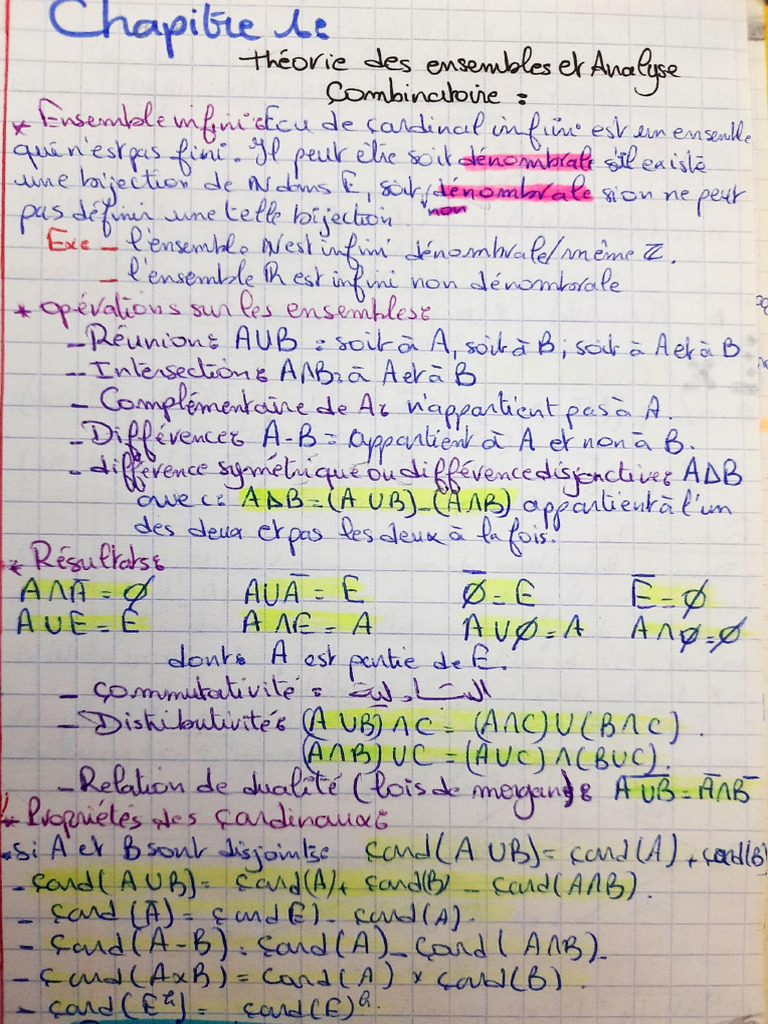 Chapitre 1:
théorie des ensembles et Analyse
Combinatoire :
* Ensemble infini: E ou de cardinal infini est un ensemble
qui n'est pas fini. Il peut être soit dénombrale s'il existe
une bijection de N dans E, soit dénombrale si on ne peut
non
pas définir une telle bijection.
Exe - l'ensemble N est infini dénombrale/même Z.
- l'ensemble R est infini non dénombrale
* opérations sur les ensembles:
- Réunion: A∪B = soit à A, soit à B, soit à A et à B
- Intersection: A∩B: à A et à B
- Complémentaire de A: n'appartient pas à A.
- Différence: A-B = appartient à A et non à B.
- différence symétrique ou différence disjonctive: A∆B
avec: A∆B=(A∪B)-(A∩B) appartient à l'un
des deux et pas les deux à la fois.
* Résultats:
A∩A̅ = ∅ A∪A̅ = E ∅̅ = E E̅ = ∅
A∪E = E A∩E = A A∪∅ = A A∩∅=∅
dont: A est partie de E.
- commutativité :
- Distributivité: (A∪B)∩C = (A∩C)∪(B∩C).
(A∩B)∪C = (A∪C)∩(B∪C).
- Relation de dualité (lois de morgan): A̅∪̅B̅ = A̅∩B̅
* Propriétés des cardinaux:
. si A et B sont disjoints: card(A∪B)= card(A)+card(B)
- card(A∪B)= card(A)+ card(B) - card(A∩B).
- card(A̅) = card E) - card(A).
- card(A-B) = card(A) - card(A∩B).
- card(A×B) = card(A) × card(B).
- card(Eᵏ) = card(E)ᵏ.